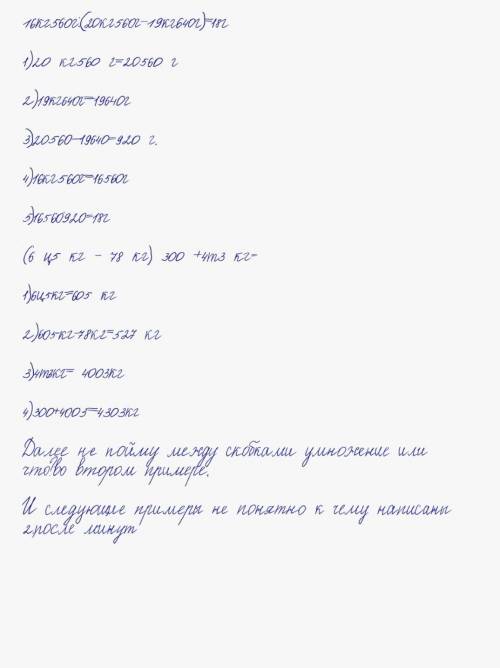 16кг560г:(20кг560г-19кг640г)=18г
1)20 кг560 г=20560 г
2)19кг640г=19640г
3)20560-19640=920 г.
4)16кг560г=16560г
5)16560920=18г
(6 ц5 кг - 78 кг) 300 +4т3 кг=
1)6ц5кг=605 кг
2)605кг-78кг=527 кг
3)4т3кг= 4003кг
4)300+4003=4303кг
Далее не пойму между скобками умножение или
чтово втором примере.
И следующие примеры не понятно к чему написаны
2,после минут